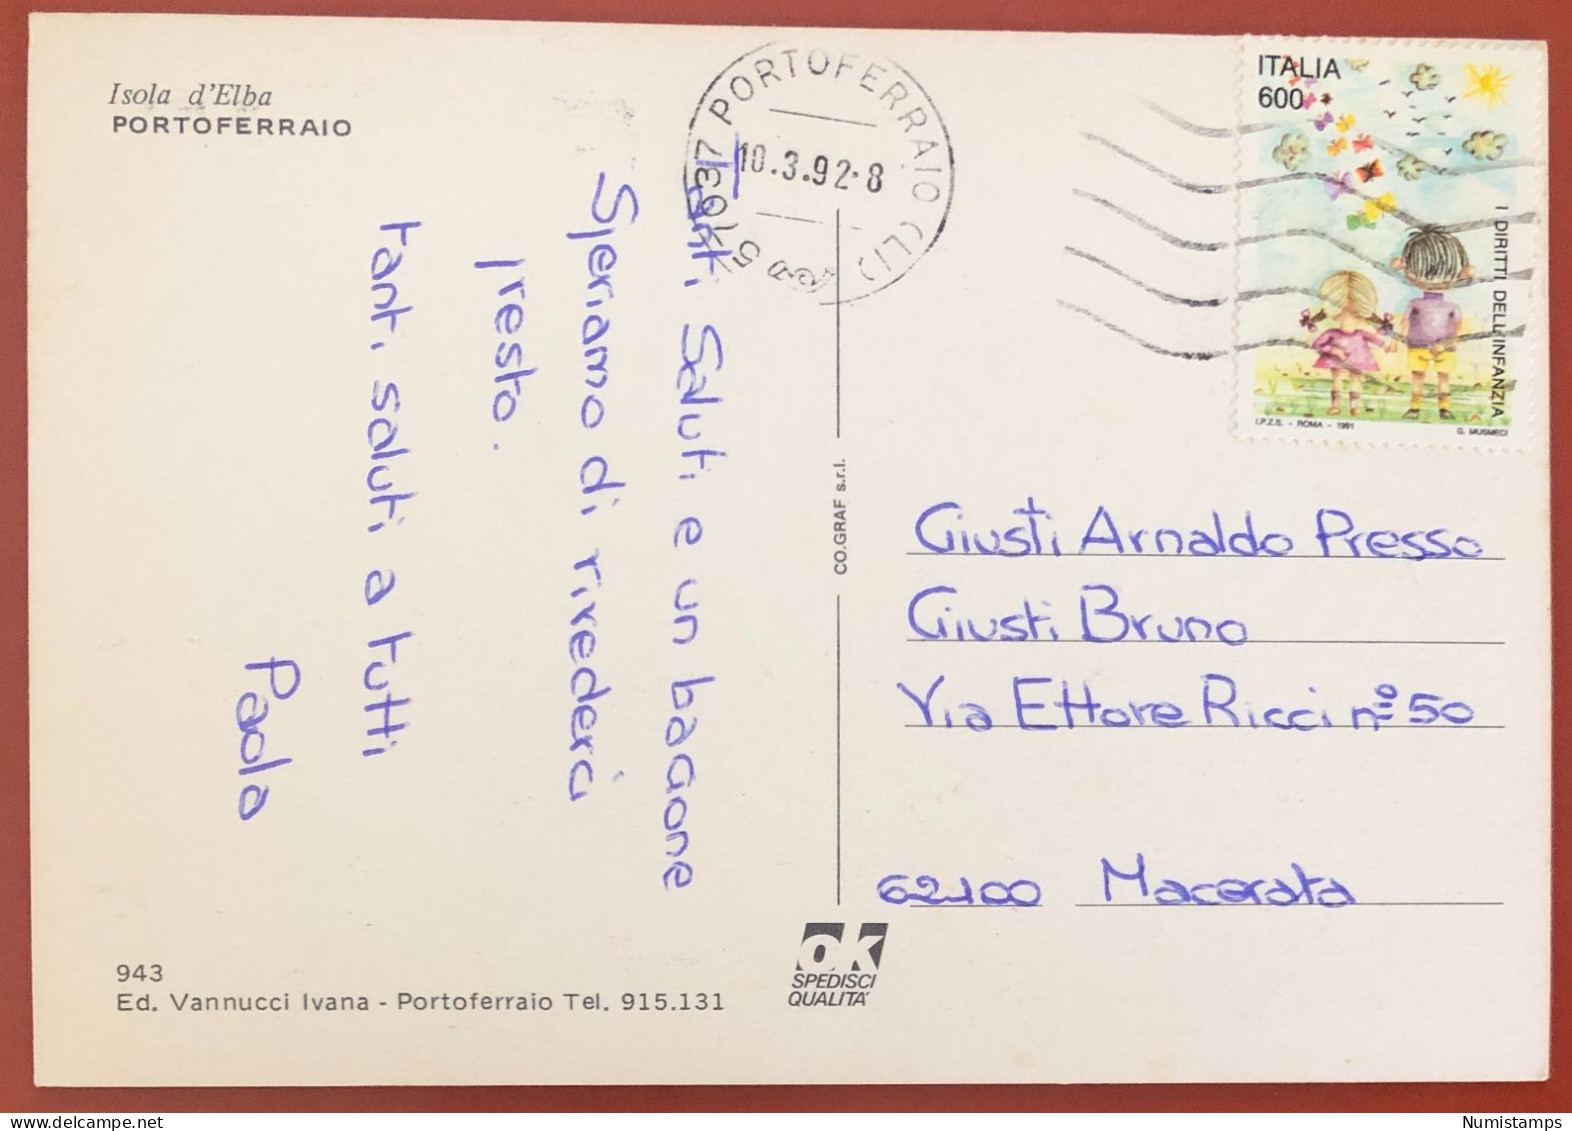 Isola d'Elba
PORTOFERRAIO
Tanti Saluti e un bacione
Speriamo di rivederci
presto.
tanti saluti a tutti
Paola
943
Ed. Vannucci Ivana - Portoferraio Tel. 915.131
CO.GRAF s.r.l.
OK
SPEDISCI
QUALITA'
57037 PORTOFERRAIO (LI)
10.3.92-8
ITALIA
600
I DIRITTI DELL'INFANZIA
I.P.Z.S. - ROMA - 1991
G. MUSMECI
Giusti Arnaldo Presso
Giusti Bruno
Via Ettore Ricci n° 50
62100 Macerata
Numistamps